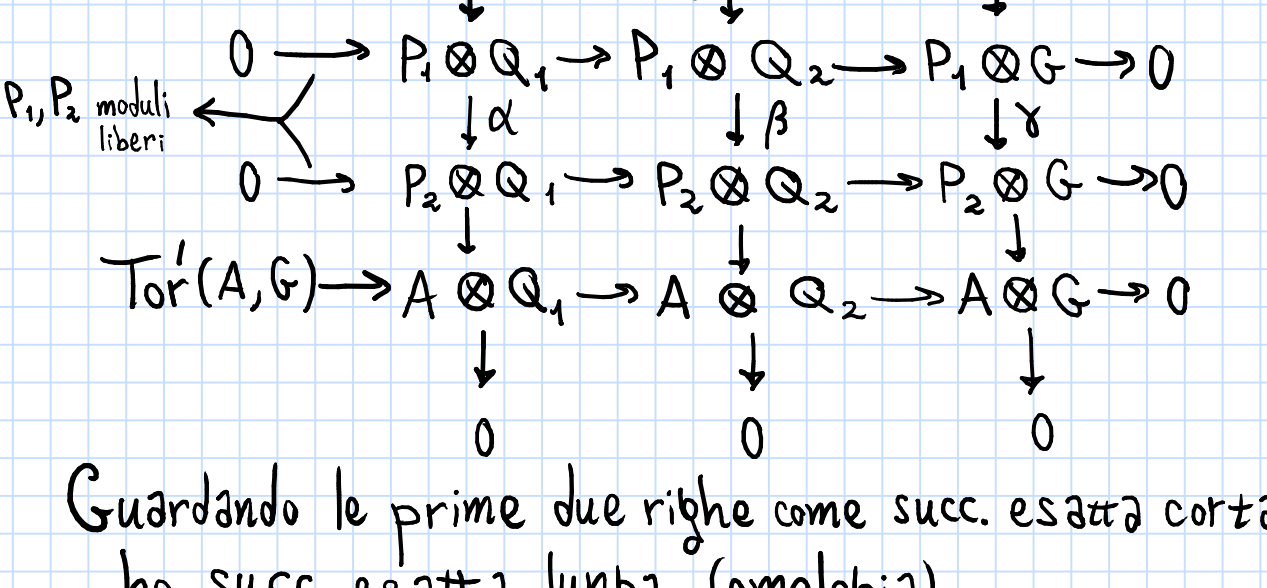 0 → P₁ ⊗ Q₁ → P₁ ⊗ Q₂ → P₁ ⊗ G → 0
P₁, P₂ moduli
liberi
↓ α ↓ β ↓ γ
0 → P₂ ⊗ Q₁ → P₂ ⊗ Q₂ → P₂ ⊗ G → 0
Tor¹(A, G) → A ⊗ Q₁ → A ⊗ Q₂ → A ⊗ G → 0
0 0 0
Guardando le prime due righe come succ. esatta corta
ho succ. esatta lunga (omologia)